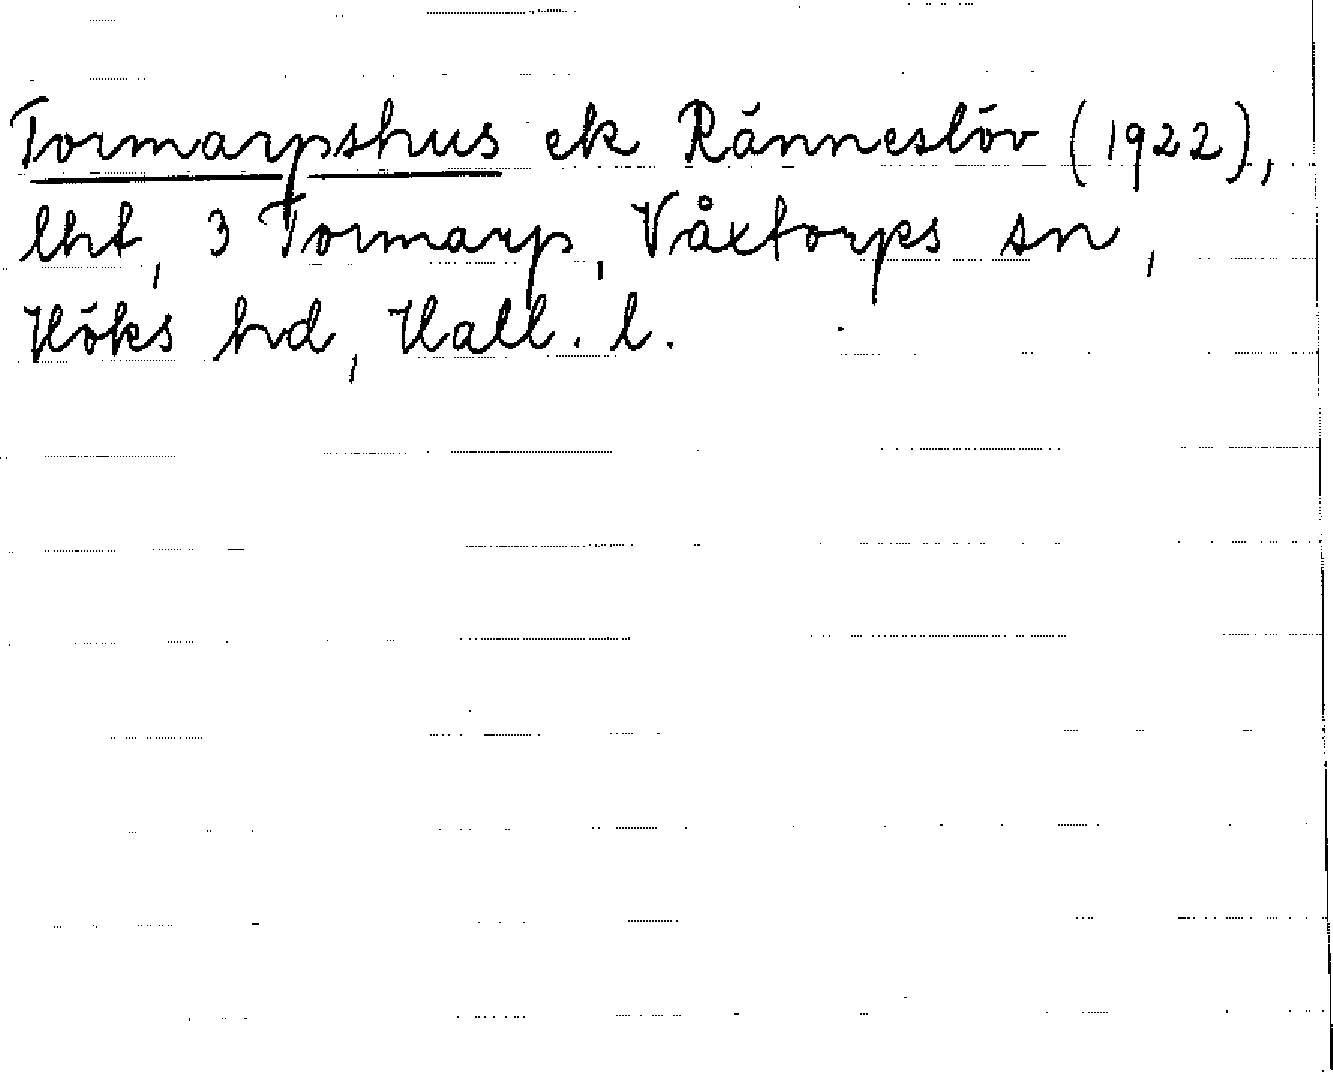 Tormarpshus ek Ränneslöv (1922),
lht, 3 Tormarp, Våxtorps sn,
Höks hd, Hall. l.